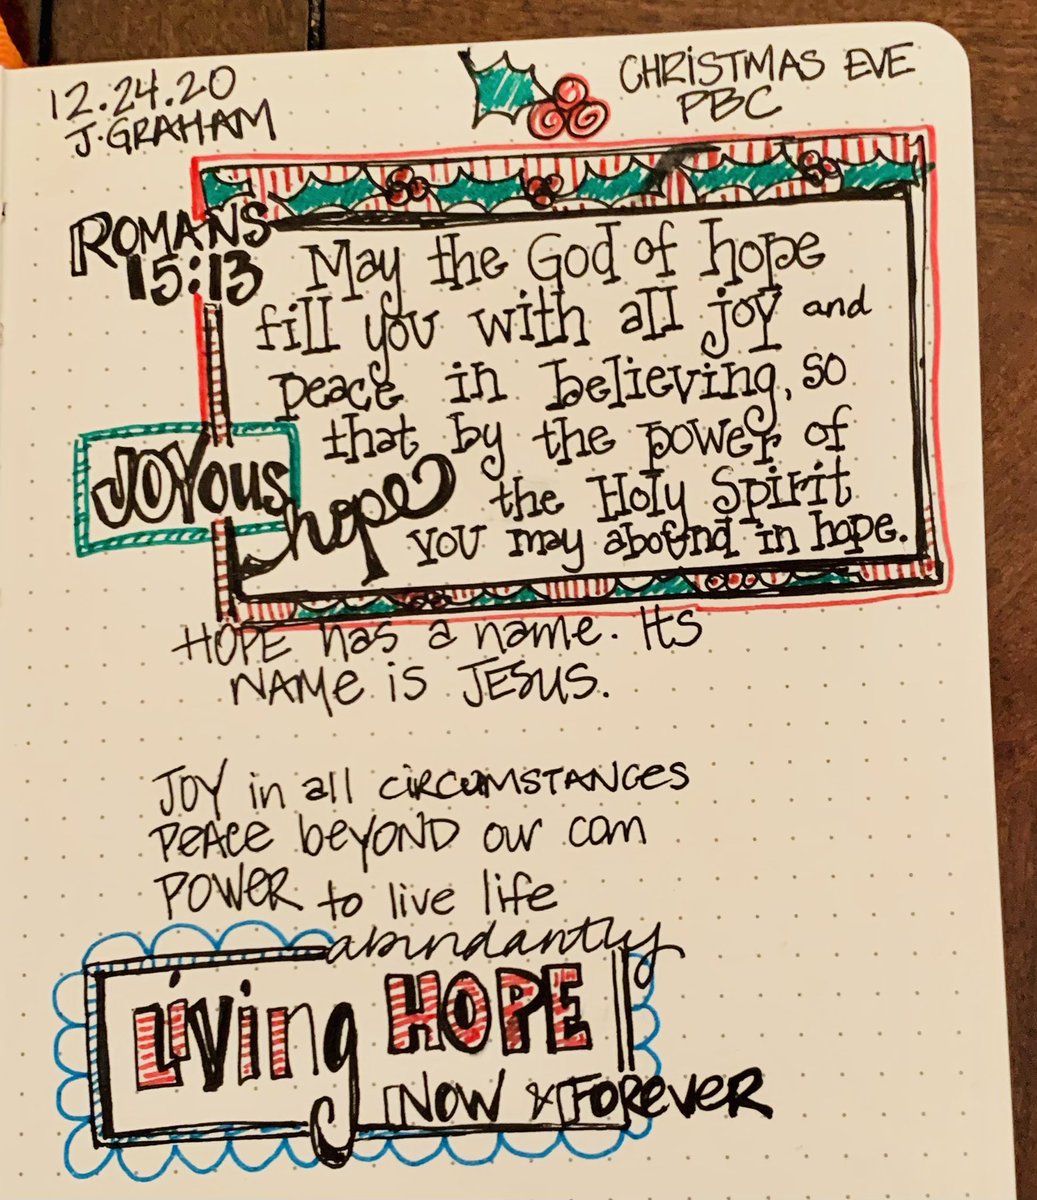 12.24.20
J. GRAHAM
CHRISTMAS EVE
PBC
ROMANS
15:13
May the God of hope
fill you with all joy and
peace in believing, so
that by the power of
the Holy Spirit
you may abound in hope.
JOYous
hope
HOPE has a name. Its
NAME is JESUS.
JOY in all CIRCUMSTANCES
PEACE beyOND our com
POWER to live life
abundantly
Living HOPE
NOW & FOREVER